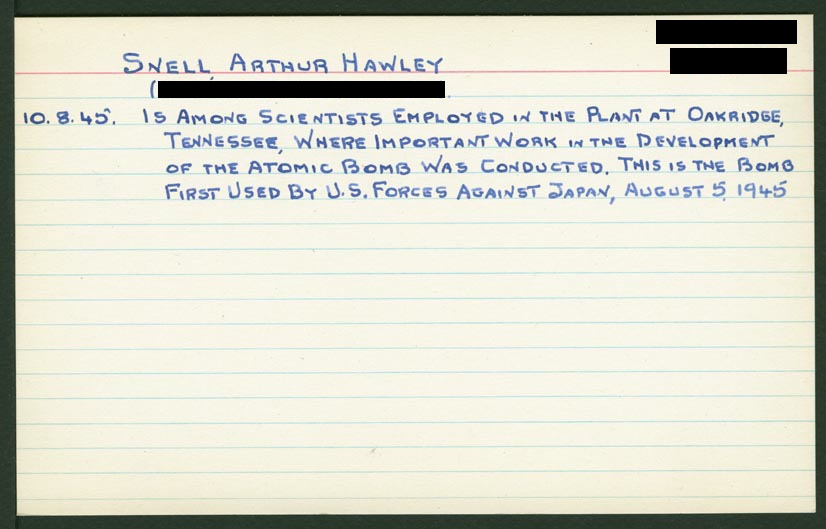 SNELL, ARTHUR HAWLEY
(
10.8.45. IS AMONG SCIENTISTS EMPLOYED IN THE PLANT AT OAKRIDGE,
TENNESSEE, WHERE IMPORTANT WORK IN THE DEVELOPMENT
OF THE ATOMIC BOMB WAS CONDUCTED. THIS IS THE BOMB
FIRST USED BY U.S. FORCES AGAINST JAPAN, AUGUST 5, 1945